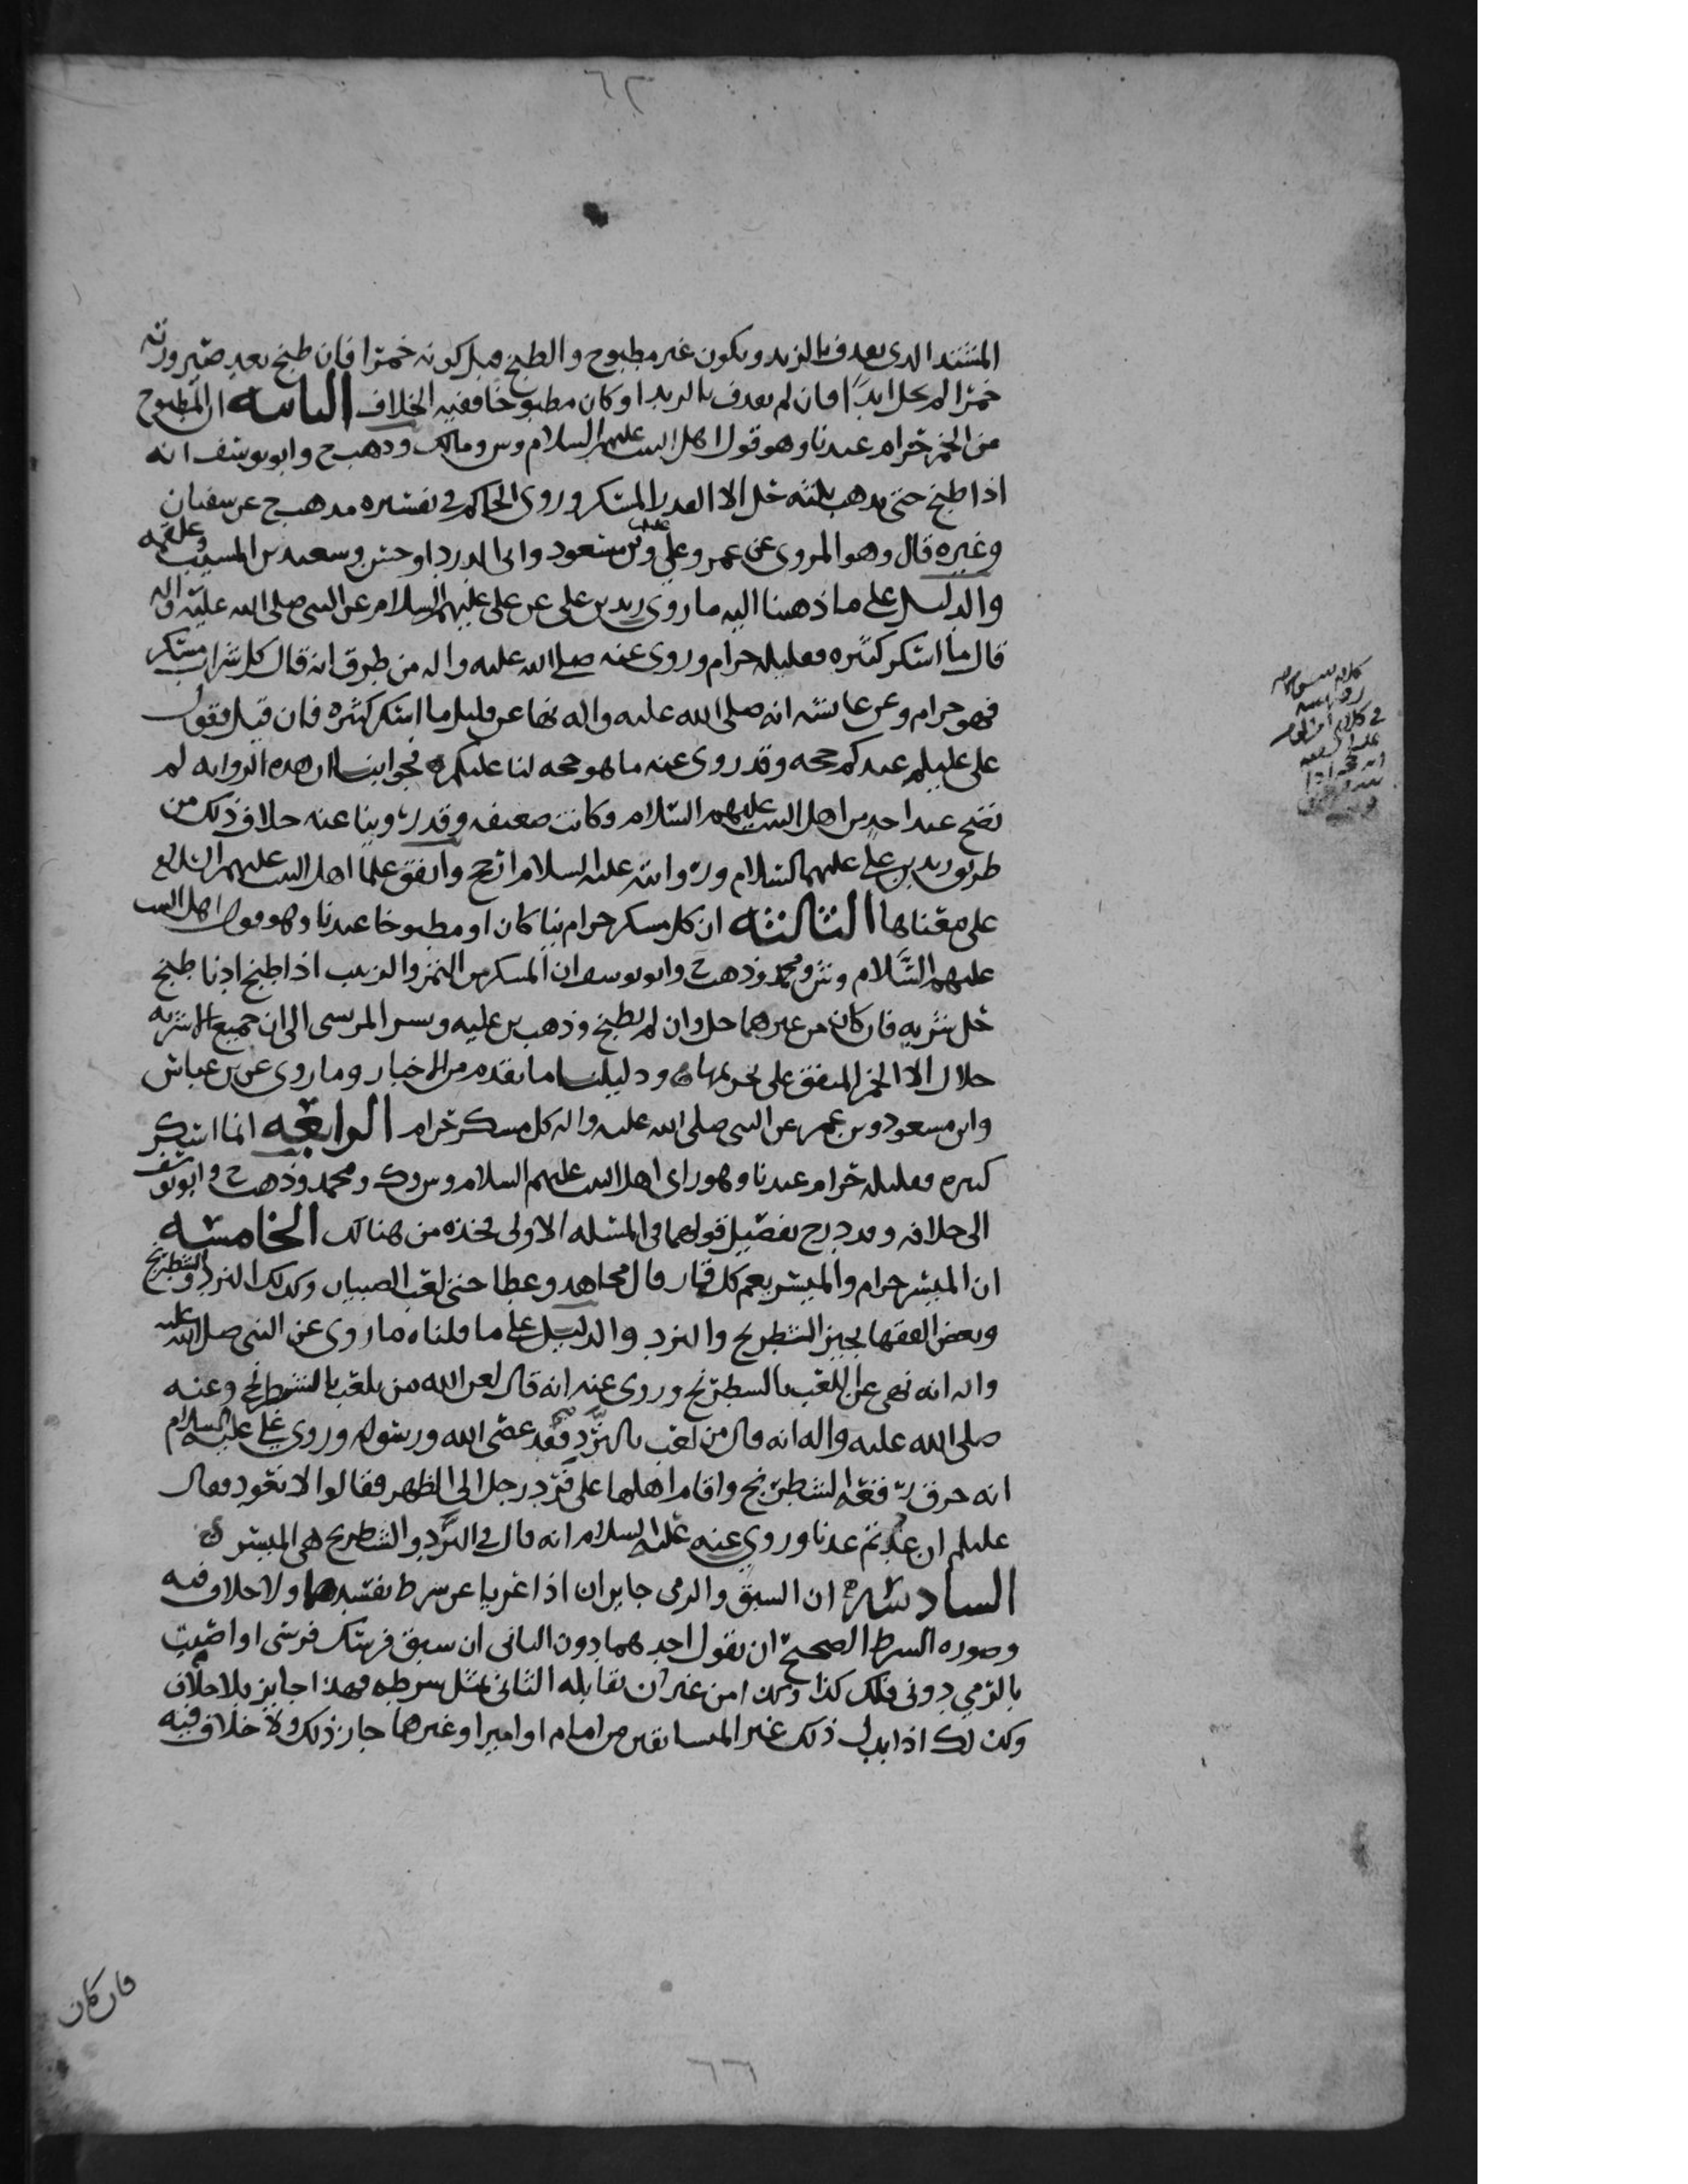 ٦٢
المشتد الذي يقذف بالزبد ويكون غير مطبوخ والطبخ قبل كونه خمرا فان طبخ بعد صيرورته
خمرا لم يحل ابدا فان لم يقذف بالزبد او كان مطبوخا ففيه الخلاف الثانيه ان المطبوخ
من الخمر حرام عندنا وهو قول اهل البيت عليهم السلام وس ومالك وذهب ح وابو يوسف انه
اذا طبخ حتى يذهب ثلثه حل الا القدر المسكر وروى الحاكم في تفسيره مذهب ح عن سفيان
وغيره قال وهو المروي عن عمر وعلي وبن مسعود وابى الدردا وحسن وسعيد بن المسيب وعلقمه
والدليل على ما ذهبنا اليه ما روى زيد بن علي عن علي عليهم السلام عن النبي صلى الله عليه واله
قال ما اسكر كثيره فقليله حرام وروى عنه صلى الله عليه واله من طرق انه قال كل شراب مسكر
فهو حرام وعن عائشه انه صلى الله عليه واله نها عن قليل ما اسكر كثيره فان قيل فقول
علي عليلم عندكم حجه وقد روى عنه ما هو حجه لنا عليكم فجوابنا ان هذه الروايه لم
تصح عند احد من اهل البيت عليهم السلام وكانت ضعيفه وقد روينا عنه خلاف ذلك من
طريق زيد بن علي عليهما السلام وروايته عليه السلام ارجح واتفق علما اهل البيت عليهم السلام
على معناها الثالثه ان كل مسكر حرام نيا كان او مطبوخا عندنا وهو قول اهل البيت
عليهم السلام وش ومحمد وذهب ح وابو يوسف ان المسكر من التمر والزبيب اذا طبخ ادنا طبخ
حل شربه فان كان من غيرهما حل وان لم يطبخ وذهب بن عليه وبشر المريسى الى ان جميع الاشربه
حلال الا الخمر المتفق على تحريمها ودليلنا ما تقدم من الاخبار وما روى عن بن عباس
وابن مسعود وبن عمر عن النبي صلى الله عليه واله كل مسكر حرام الرابعه انما اسكر
كثيره فقليله حرام عندنا وهو راى اهل البيت عليهم السلام وس وك ومحمد وذهب ح وابو يوسف
الى خلافه وقد درج تفصيل قولهما في المسئله الاولى فخذه من هنالك الخامسه
ان الميسر حرام والميسر يعم كل قمار قال مجاهد وعطا حتى لعب الصبيان وكذلك النرد والشطرنج
وبعض الفقها يجيز الشطرنج والنرد والدليل على ما قلناه ما روى عن النبي صلى الله عليه
واله انه نهى عن اللعب بالشطرنج وروى عنه انه قال لعن الله من يلعب بالشطرنج وعنه
صلى الله عليه واله انه قال من لعب بالنرد فقد عصى الله ورسوله وروى علي عليه السلام
انه حرق رقعه الشطرنج واقام اهلها على فرد رجل الى الظهر فقالوا لا نعود فقال
عليلم ان عدتم عدنا وروي عنه عليه السلام انه قال في النرد والشطرنج هي الميسر
السادسه ان السبق والرمى جايزان اذا عريا عن شرط يفسدهما ولا خلاف فيه
وصوره الشرط الصحيح ان يقول احدهما دون الثانى ان سبق فرسك فرسى او اصبت
بالرمي دونى فلك كذا وكذا من غير ان يقابله الثانى بمثل شرطه فهذا جايز بلا خلاف
وكذلك اذا بذل ذلك غير المتسابقين من امام او امير او غيرهما جاز ذلك ولا خلاف فيه
فان كان
٦٦